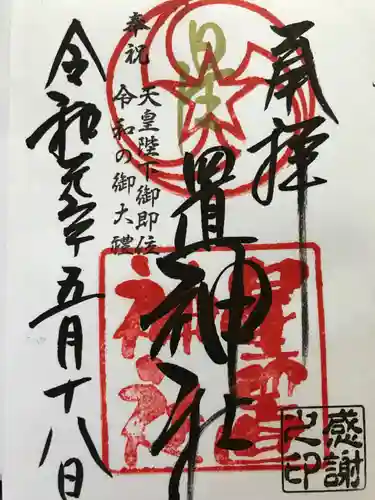 奉拝
星置神社
奉祝
天皇陛下御即位
令和の御大禮
令和元年五月十八日
星置
神社
感謝
之印